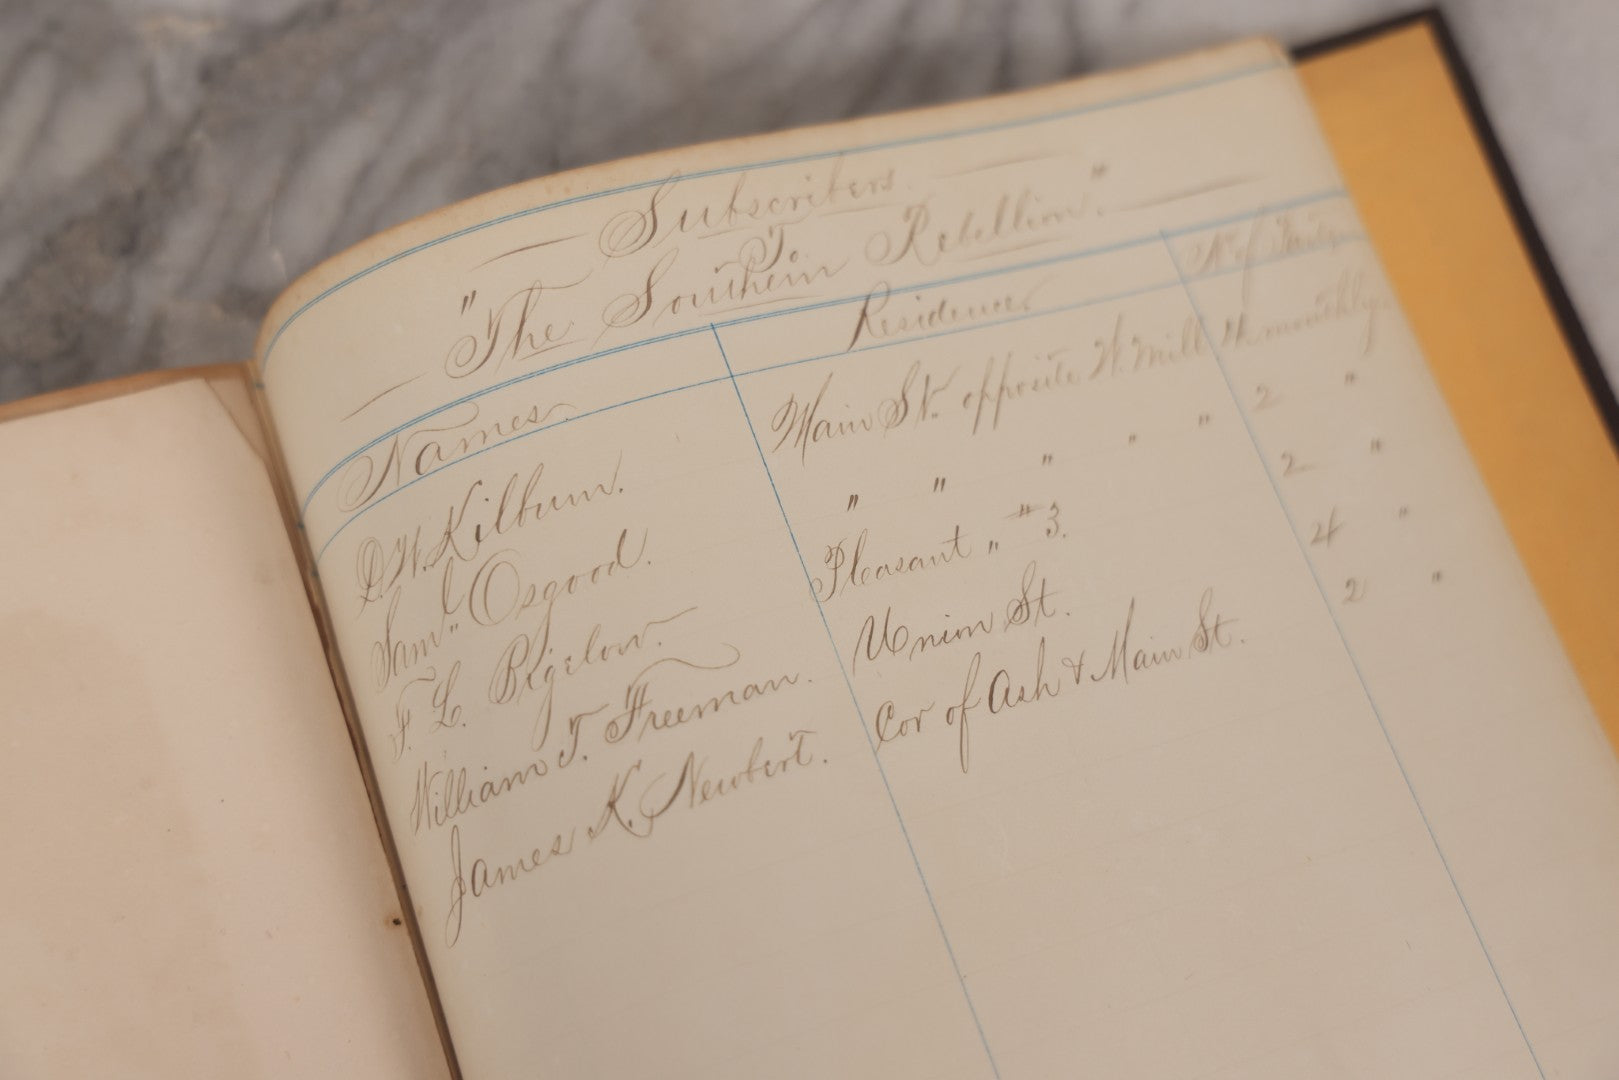 Subscribers
To
"The Southern Rebellion."
Names. Residence. No. of
D. W. Kilburn. Main St. opposite W. Mill 4 monthly.
Saml. Osgood. " " " " " 2 "
F. L. Bigelow. Pleasant " # 3. 2 "
William T. Freeman. Union St. 4 "
James K. Newbert. Cor of Ash & Main St. 2 "